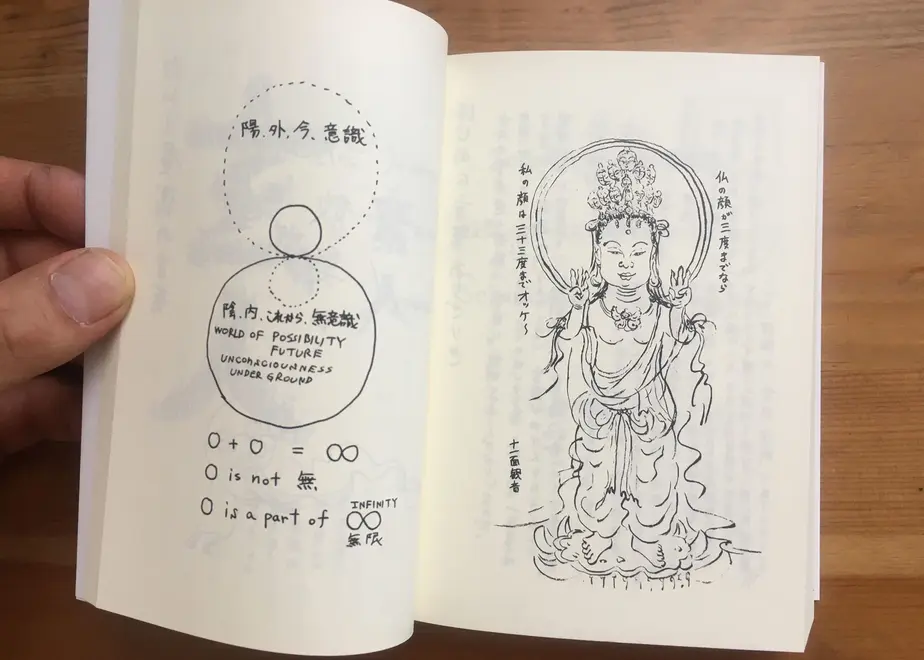 陽、外、今、意識
陰、内、これから、無意識
WORLD OF POSSIBILITY
FUTURE
UNCONSCIOUNNESS
UNDER GROUND
0 + 0 = ∞
0 is not 無
INFINITY
0 is a part of ∞
無限
仏の顔が三度までなら
私の顔は三十三度までオッケ〜
十一面観音